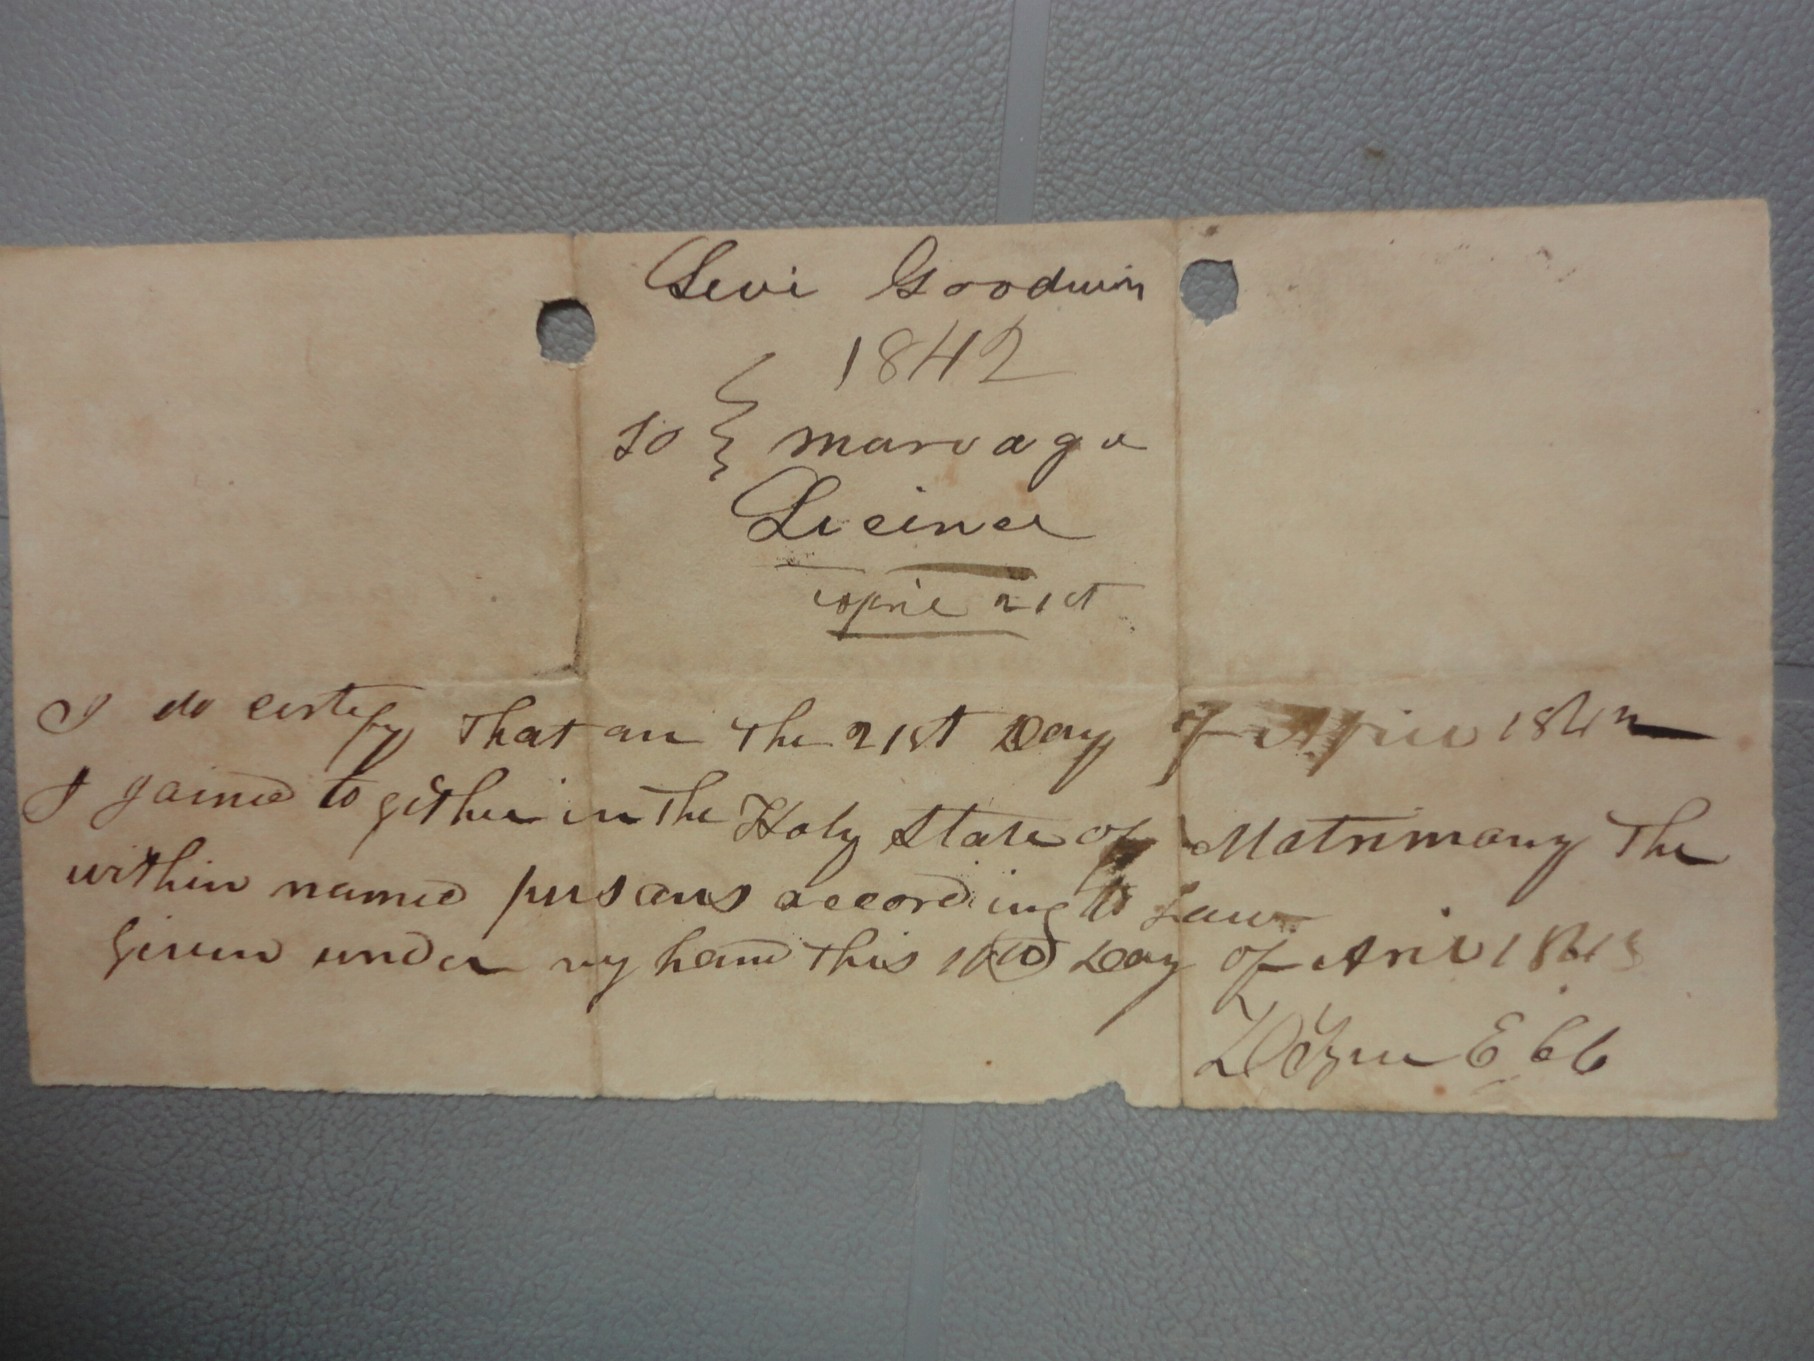 Levi Goodwin
1842
to } marrage
Licince
April 21st
I do certify that on the 21st Day of April 1842
I joined to gether in the Holy State of Matrimony The
within named persons according to Law
given under my hand this Day of Aril 184
Ebb